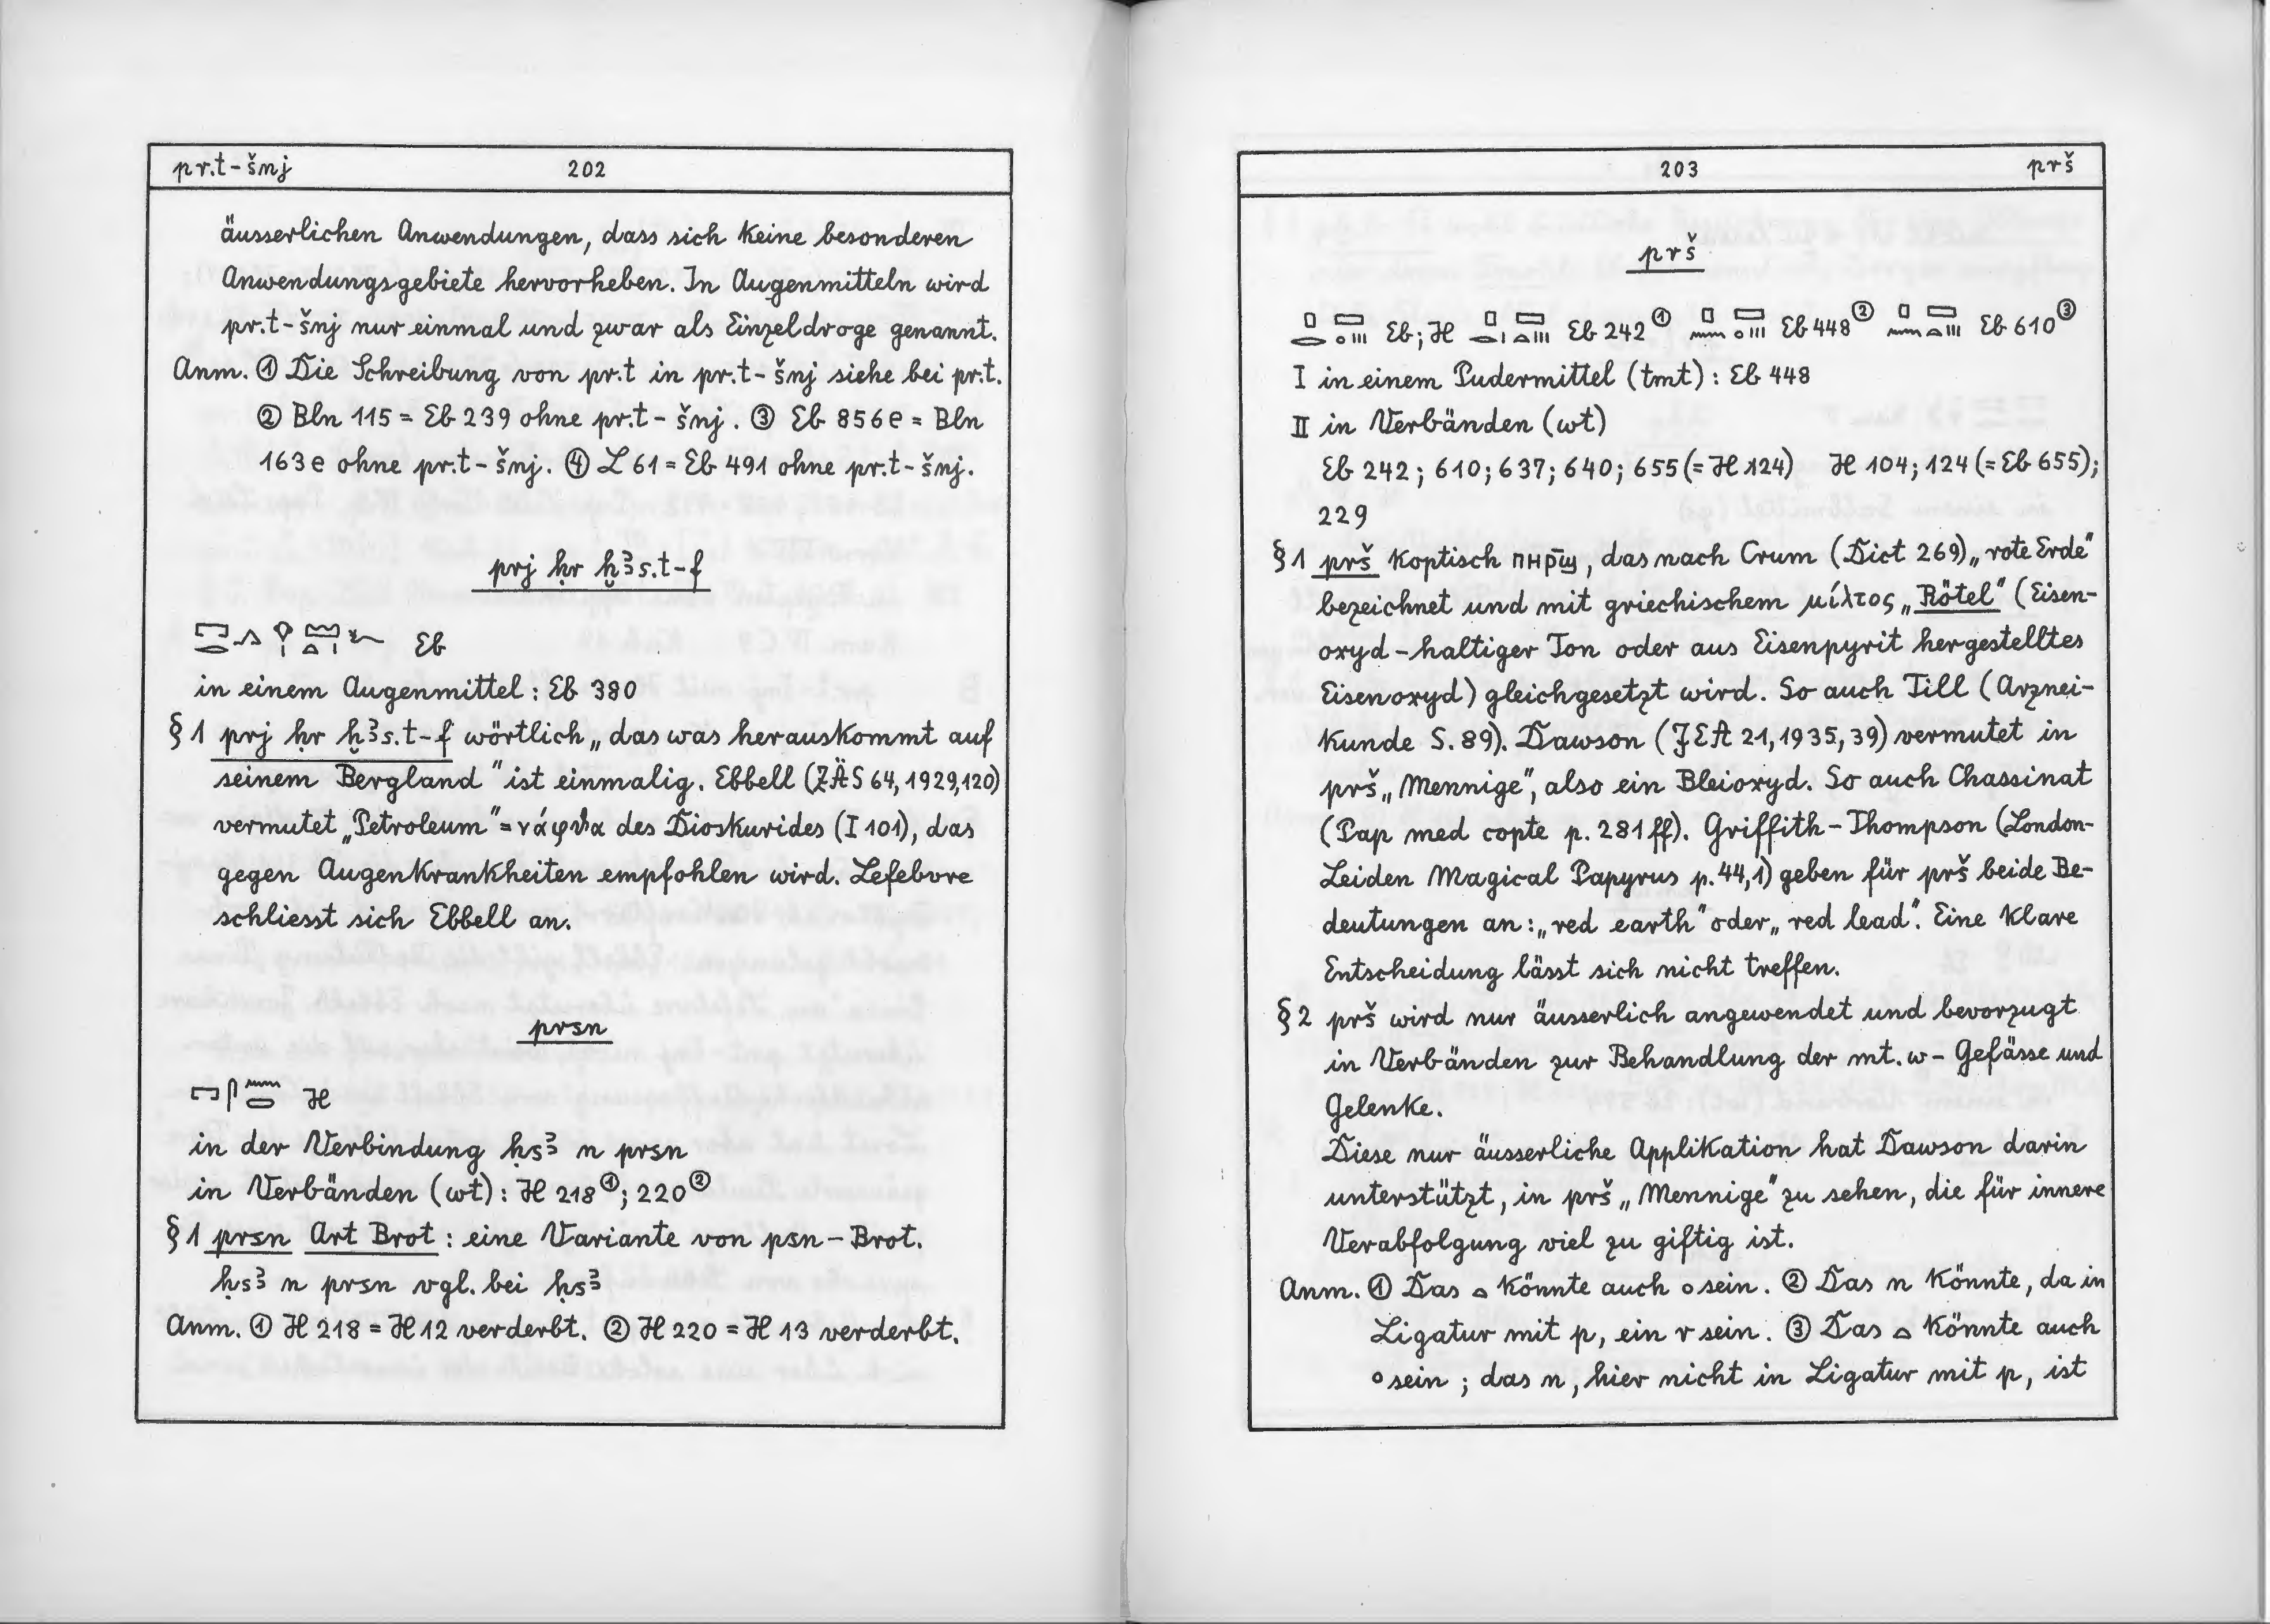 pr.t-šnj 202
äusserlichen Anwendungen, dass sich keine besonderen
Anwendungsgebiete hervorheben. In Augenmitteln wird
pr.t-šnj nur einmal und zwar als Einzeldroge genannt.
Anm. ① Die Schreibung von pr.t in pr.t-šnj siehe bei pr.t.
② Bln 115 = Eb 239 ohne pr.t-šnj. ③ Eb 856e = Bln
163e ohne pr.t-šnj. ④ L 61 = Eb 491 ohne pr.t-šnj.
prj ḥr ḫꜣs.t-f
𓉐𓂋𓂻𓁷𓏤𓈉𓏏𓏤𓆑 Eb
in einem Augenmittel: Eb 380
§ 1 prj ḥr ḫꜣs.t-f wörtlich „das was herauskommt auf
seinem Bergland" ist einmalig. Ebbell (ZÄS 64, 1929, 120)
vermutet „Petroleum" = νάφϑα des Dioskurides (I 101), das
gegen Augenkrankheiten empfohlen wird. Lefebvre
schliesst sich Ebbell an.
prsn
𓉐𓋴𓈖𓏒 H
in der Verbindung ḥsꜣ n prsn
in Verbänden (wt): H 218①; 220②
§ 1 prsn Art Brot: eine Variante von psn-Brot.
ḥsꜣ n prsn vgl. bei ḥsꜣ
Anm. ① H 218 = H 12 verderbt. ② H 220 = H 13 verderbt.
203 prš
prš
𓊪𓂋𓈙𓈒𓏥 Eb; H 𓊪𓂋𓏤𓈙𓏏𓏥 Eb 242① 𓊪𓈖𓈙𓈒𓏥 Eb 448② 𓊪𓈖𓈙𓏏𓏥 Eb 610③
I in einem Pudermittel (tmt): Eb 448
II in Verbänden (wt)
Eb 242; 610; 637; 640; 655 (= H 124) H 104; 124 (= Eb 655);
229
§ 1 prš koptisch ⲡⲏⲣ̅ϣ, das nach Crum (Dict 269) „rote Erde"
bezeichnet und mit griechischem μίλτος „Rötel" (Eisen-
oxyd-haltiger Ton oder aus Eisenpyrit hergestelltes
Eisenoxyd) gleichgesetzt wird. So auch Till (Arznei-
kunde S. 89). Dawson (JEA 21, 1935, 39) vermutet in
prš „Mennige", also ein Bleioxyd. So auch Chassinat
(Pap med copte p. 281 ff). Griffith-Thompson (London-
Leiden Magical Papyrus p. 44,1) geben für prš beide Be-
deutungen an: „red earth" oder „red lead". Eine klare
Entscheidung lässt sich nicht treffen.
§ 2 prš wird nur äusserlich angewendet und bevorzugt
in Verbänden zur Behandlung der mt.w-Gefässe und
Gelenke.
Diese nur äusserliche Applikation hat Dawson darin
unterstützt, in prš „Mennige" zu sehen, die für innere
Verabfolgung viel zu giftig ist.
Anm. ① Das 𓏏 könnte auch 𓈒 sein. ② Das n könnte, da in
Ligatur mit p, ein r sein. ③ Das 𓏏 könnte auch
𓈒 sein; das n, hier nicht in Ligatur mit p, ist